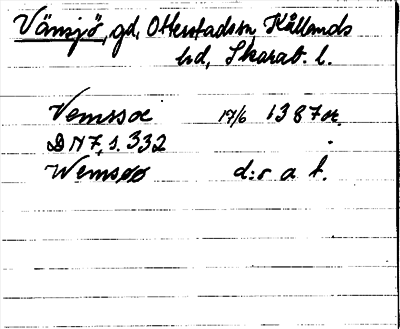 Vänsjö, gd, Otterstads sn, Kållands
hd, Skarab. l.
Vemssoe 17/6 1387 or.
DN 7, s. 332
Wemsøø d:o a f.